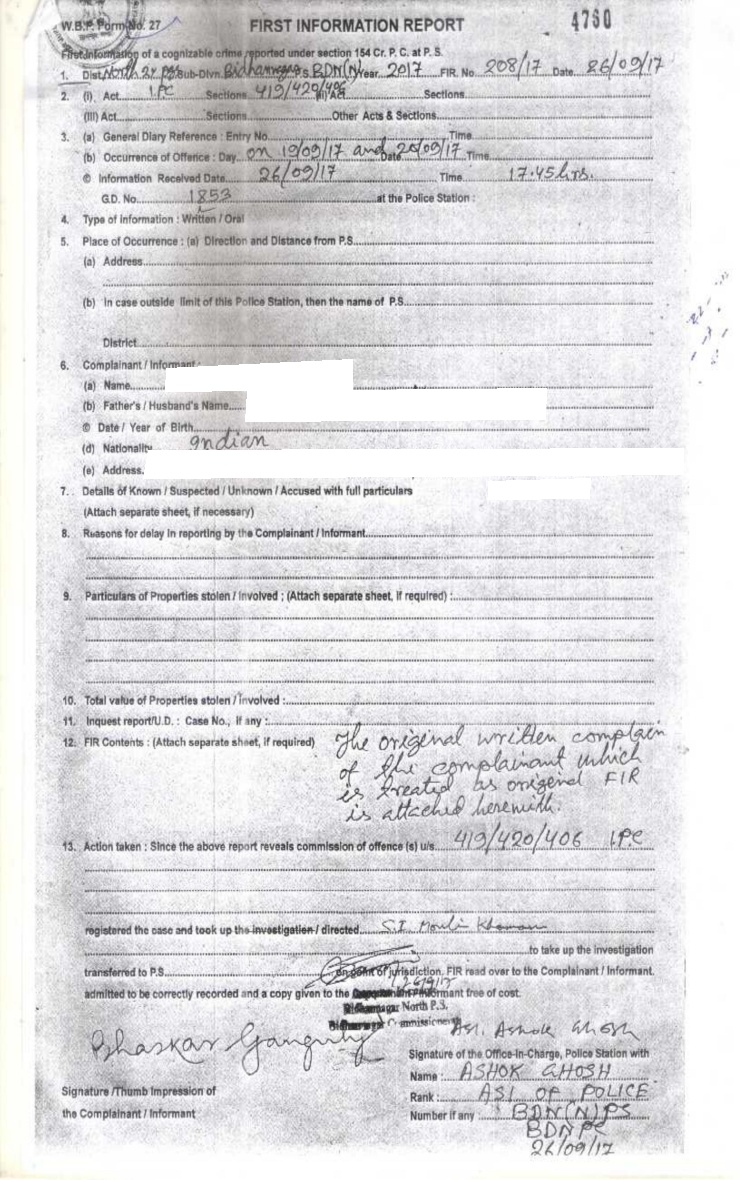 W.B.P. Form No. 27
FIRST INFORMATION REPORT
4760
First Information of a cognizable crime reported under section 154 Cr. P. C. at P. S.
1. Dist. North 24 Sub-Divn. Bidhannagar P.S. BDN(N) Year 2017 FIR. No. 208/17 Date 26/09/17
2. (i) Act IPC Sections 419/420/406 (ii) Act Sections
(III) Act Sections Other Acts & Sections
3. (a) General Diary Reference : Entry No. Time
(b) Occurrence of Offence : Day on 19/09/17 and Date 20/09/17 Time
© Information Received Date 26/09/17 Time 17.45 hrs.
G.D. No. 1853 at the Police Station :
4. Type of Information : Written / Oral
5. Place of Occurrence : (a) Direction and Distance from P.S.
(a) Address
(b) In case outside limit of this Police Station, then the name of P.S.
District
6. Complainant / Informant :
(a) Name
(b) Father's / Husband's Name
© Date / Year of Birth
(d) Nationality Indian
(e) Address.
7. Details of Known / Suspected / Unknown / Accused with full particulars
(Attach separate sheet, if necessary)
8. Reasons for delay in reporting by the Complainant / Informant
9. Particulars of Properties stolen / Involved ; (Attach separate sheet, if required) :
10. Total value of Properties stolen / Involved :
11. Inquest report/U.D. : Case No., if any :
12. FIR Contents : (Attach separate sheet, if required) The original written complain
of the complainant which
is treated as origenal FIR
is attached herewith.
13. Action taken : Since the above report reveals commission of offence (s) u/s 419/420/406 I.P.C
registered the case and took up the investigation / directed S.I. Mouli
to take up the investigation
transferred to P.S. on point of jurisdiction. FIR read over to the Complainant / Informant.
26/9/17
admitted to be correctly recorded and a copy given to the Informant free of cost.
Bidhannagar North P.S.
Bidhannagar Commissionerate
Bhaskar Ganguly
ASI. Ashok Ghosh
Signature of the Office-In-Charge, Police Station with
Name : ASHOK GHOSH
Signature /Thumb Impression of
Rank : ASI OF POLICE
the Complainant / Informant
Number if any : BDN(N)PS
BDN PC
26/09/17